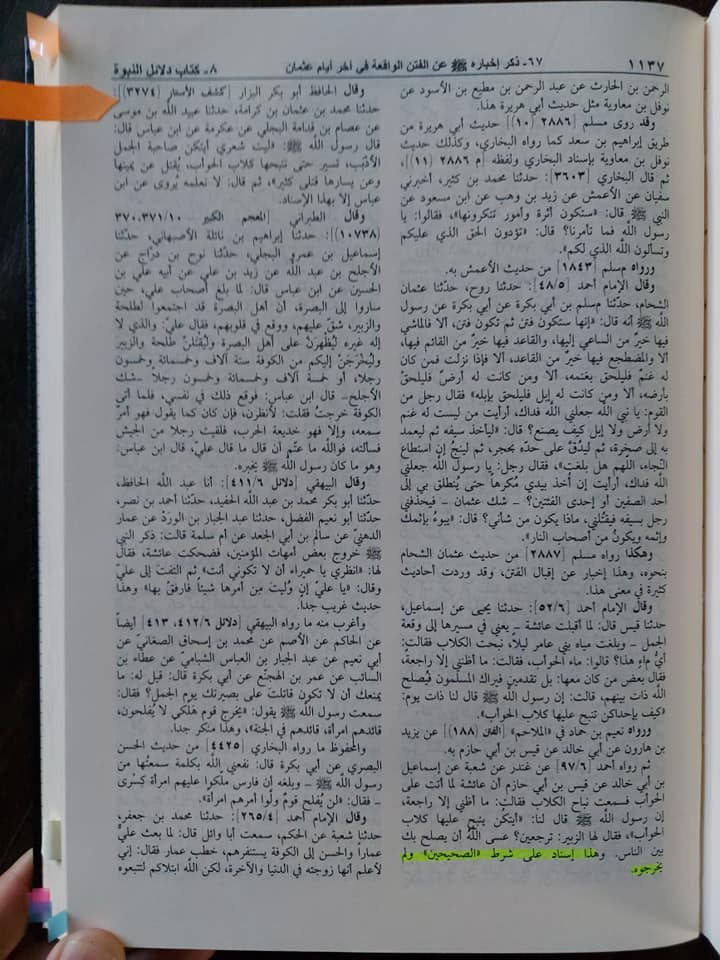 ١١٣٧
٦٧- ذكر إخباره ﷺ عن الفتن الواقعة في آخر أيام عثمان
٨- كتاب دلائل النبوة
الرحمن بن الحارث عن عبد الرحمن بن مطيع بن الأسود عن
نوفل بن معاوية مثل حديث أبي هريرة هذا.
وقد روى مسلم [٢٨٨٦ (١٠)] حديث أبي هريرة من
طريق إبراهيم بن سعد كما رواه البخاري، وكذلك حديث
نوفل بن معاوية بإسناد البخاري ولفظه [م ٢٨٨٦ (١١)]،
ثم قال البخاري [٣٦٠٣]: حدثنا محمد بن كثير، أخبرني
سفيان عن الأعمش عن زيد بن وهب عن ابن مسعود عن
النبي ﷺ قال: «ستكون أثرة وأمور تنكرونها»، فقالوا: يا
رسول اللَّه فما تأمرنا؟ قال: «تؤدون الحق الذي عليكم
وتسألون اللَّه الذي لكم».
ورواه مسلم [١٨٤٣] من حديث الأعمش به.
وقال الإمام أحمد [٤٨/٥]: حدثنا روح، حدثنا عثمان
الشحام، حدثنا مسلم بن أبي بكرة عن أبي بكرة عن رسول
اللَّه ﷺ أنه قال: «إنها ستكون فتن ثم تكون فتن، ألا فالماشي
فيها خيرٌ من الساعي إليها، والقاعد فيها خير من القائم فيها،
ألا والمضطجع فيها خيرٌ من القاعد، ألا فإذا نزلت فمن كان
له غنمٌ فليلحق بغنمه، ألا ومن كانت له أرضٌ فليلحقْ
بأرضه، ألا ومن كانت له إبل فليلحق بإبله» فقال رجل من
القوم: يا نبي اللَّه جعلني اللَّه فداك، أرأيت من ليست له غنم
ولا أرض ولا إبل كيف يصنع؟ قال: «ليأخذ سيفه ثم ليعمد
به إلى صخرة، ثم ليدُقَّ على حدِّه بحجر، ثم لينجُ إن استطاع
النَّجاء، اللهم هل بلغت»، فقال رجل: يا رسول اللَّه جعلني
اللَّه فداك، أرأيت إن أُخذ بيدي مُكرهًا حتى يُنطلق بي إلى
أحد الصفين أو إحدى الفئتين؟ – شك عثمان – فيحذفني
رجل بسيفه فيقتُلني، ماذا يكون من شأني؟ قال: «يبوءُ بإثمك
وإثمه ويكونُ من أصحاب النار».
وهكذا رواه مسلم [٢٨٨٧] من حديث عثمان الشحام
بنحوه، وهذا إخبار عن إقبال الفتن، وقد وردت أحاديث
كثيرة في معنى هذا.
وقال الإمام أحمد [٥٢/٦]: حدثنا يحيى عن إسماعيل،
حدثنا قيس قال: لما أقبلت عائشة – يعني في مسيرها إلى وقعة
الجمل – وبلغت مياه بني عامر ليلاً، نبحت الكلاب فقالت:
أيُّ ماءٍ هذا؟ قالوا: ماء الحوأب، فقالت: ما أظنني إلا راجعةً،
فقال بعض من كان معها: بل تقدمين فيراك المسلمون فيُصلح
اللَّه ذات بينهم، قالت: إن رسول اللَّه ﷺ قال لنا ذات يوم:
«كيف بإحداكن تنبح عليها كلاب الحوأب».
ورواه نعيم بن حماد في «الملاحم» [الفتن (١٨٨)] عن يزيد
بن هارون عن أبي خالد عن قيس بن أبي حازم به.
ثم رواه أحمد [٩٧/٦] عن غندر عن شعبة عن إسماعيل
بن أبي خالد عن قيس بن أبي حازم أن عائشة لما أتت على
الحوأب فسمعت نباح الكلاب فقالت: ما أظنني إلا راجعة،
إن رسول اللَّه ﷺ قال لنا: «أيتكن ينبح عليها كلاب
الحوأب»، فقال لها الزبير: ترجعين؟ عسى اللَّهُ أن يصلح بك
بين الناس. وهذا إسناد على شرط «الصحيحين» ولم
يخرجوه.
وقال الحافظ أبو بكر البزار [كشف الأستار (٣٢٧٤)]:
حدثنا محمد بن عثمان بن كرامة، حدثنا عبيد اللَّه بن موسى
عن عصام بن قدامة البجلي عن عكرمة عن ابن عباس قال:
قال رسول اللَّه ﷺ: «ليت شعري أيتكن صاحبة الجمل
الأدْبَب، تسير حتى تنبحها كلاب الحوأب، يُقتل عن يمينها
وعن يسارها قتلى كثير»، ثم قال: لا نعلمه يُروى عن ابن
عباس إلا بهذا الإسناد.
وقال الطبراني [المعجم الكبير ٣٧٠،٣٧١/١٠
(١٠٧٣٨)]: حدثنا إبراهيم بن نائلة الأصبهاني، حدّثنا
إسماعيل بن عمرو البجلي، حدّثنا نوح بن درَّاج عن
الأجلح بن عبد اللَّه عن زيد بن علي عن أبيه علي بن
الحسين عن ابن عباس قال: لما بلغ أصحاب علي، حين
ساروا إلى البصرة، أن أهل البصرة قد اجتمعوا لطلحة
والزبير، شقَّ عليهم، ووقع في قلوبهم، فقال عليّ: والذي لا
إله غيره ليُظهْرنُ على أهل البصرة وليُقتلنَّ طلحة والزبير
وليُخرُجنَّ إليكم من الكوفة ستة آلاف وخمسمائة وخمسون
رجلا، أو خمسة آلاف وخمسمائة وخمسون رجلا –شك
الأجلح– قال ابن عباس: فوقع ذلك في نفسي، فلما أتى
الكوفة خرجتُ فقلت: لأنظرن، فإن كان كما يقول فهو أمرٌ
سمعه، وإلا فهو خديعة الحرب، فلقيت رجلا من الجيش
فسألته، فواللَّه ما عتّم أن قال ما قال عليّ، قال ابن عباس:
وهو ما كان رسول اللَّه ﷺ يخبره.
وقال البيهقي [دلائل ٤١١/٦]: أنا عبد اللَّه الحافظ،
حدّثنا أبو بكر محمد بن عبد اللَّه الحفيد، حدّثنا أحمد بن نصر،
حدّثنا أبو نعيم الفضل، حدثنا عبد الجبار بن الورْد عن عمار
الدهنيّ عن سالم بن أبي الجعد عن أم سلمة قالت: ذكر النبي
ﷺ خروج بعض أمهات المؤمنين، فضحكت عائشة، فقال
لها: «انظري يا حميراء أن لا تكوني أنت» ثم التفت إلى عليّ
وقال: «يا عليّ إن وُلِّيتَ مِن أمرها شيئاً فارفقْ بها» وهذا
حديث غريب جداً.
وأغرب منه ما رواه البيهقي [دلائل ٤١٢/٦، ٤١٣] أيضاً
عن الحاكم عن الأصم عن محمد بن إسحاق الصغانيّ عن
أبي نعيم عن عبد الجبار بن العباس الشباميّ عن عطاء بن
السائب عن عمر بن الهَجنَّع عن أبي بكرة قال: قيل له: ما
يمنعك أن لا تكون قاتلتَ على بصيرتك يوم الجمل؟ فقال:
سمعت رسول اللَّه ﷺ يقول: «يخرج قوم هَلكى لا يُفلحون،
قائدهم امرأة، قائدهم في الجنة»، وهذا منكر جداً.
والمحفوظ ما رواه البخاري [٤٤٢٥] من حديث الحسن
البصري عن أبي بكرة قال: نفعني اللَّه بكلمة سمعتُها من
رسول اللَّه ﷺ – وبلغه أن فارس ملكوا عليهم امرأة كسْرى
– فقال: «لن يُفلح قومٌ ولَّوا أمرهم امرأة».
وقال الإمام أحمد [٢٦٥/٤]: حدثنا محمد بن جعفر،
حدثنا شعبة عن الحكم، سمعت أبا وائل قال: لما بعث عليّ
عماراً والحسن إلى الكوفة يستنفرهم، خطب عمار فقال: إني
لأعلم أنها زوجته في الدنيا والآخرة، لكن اللَّه ابتلاكم لتتبعوه